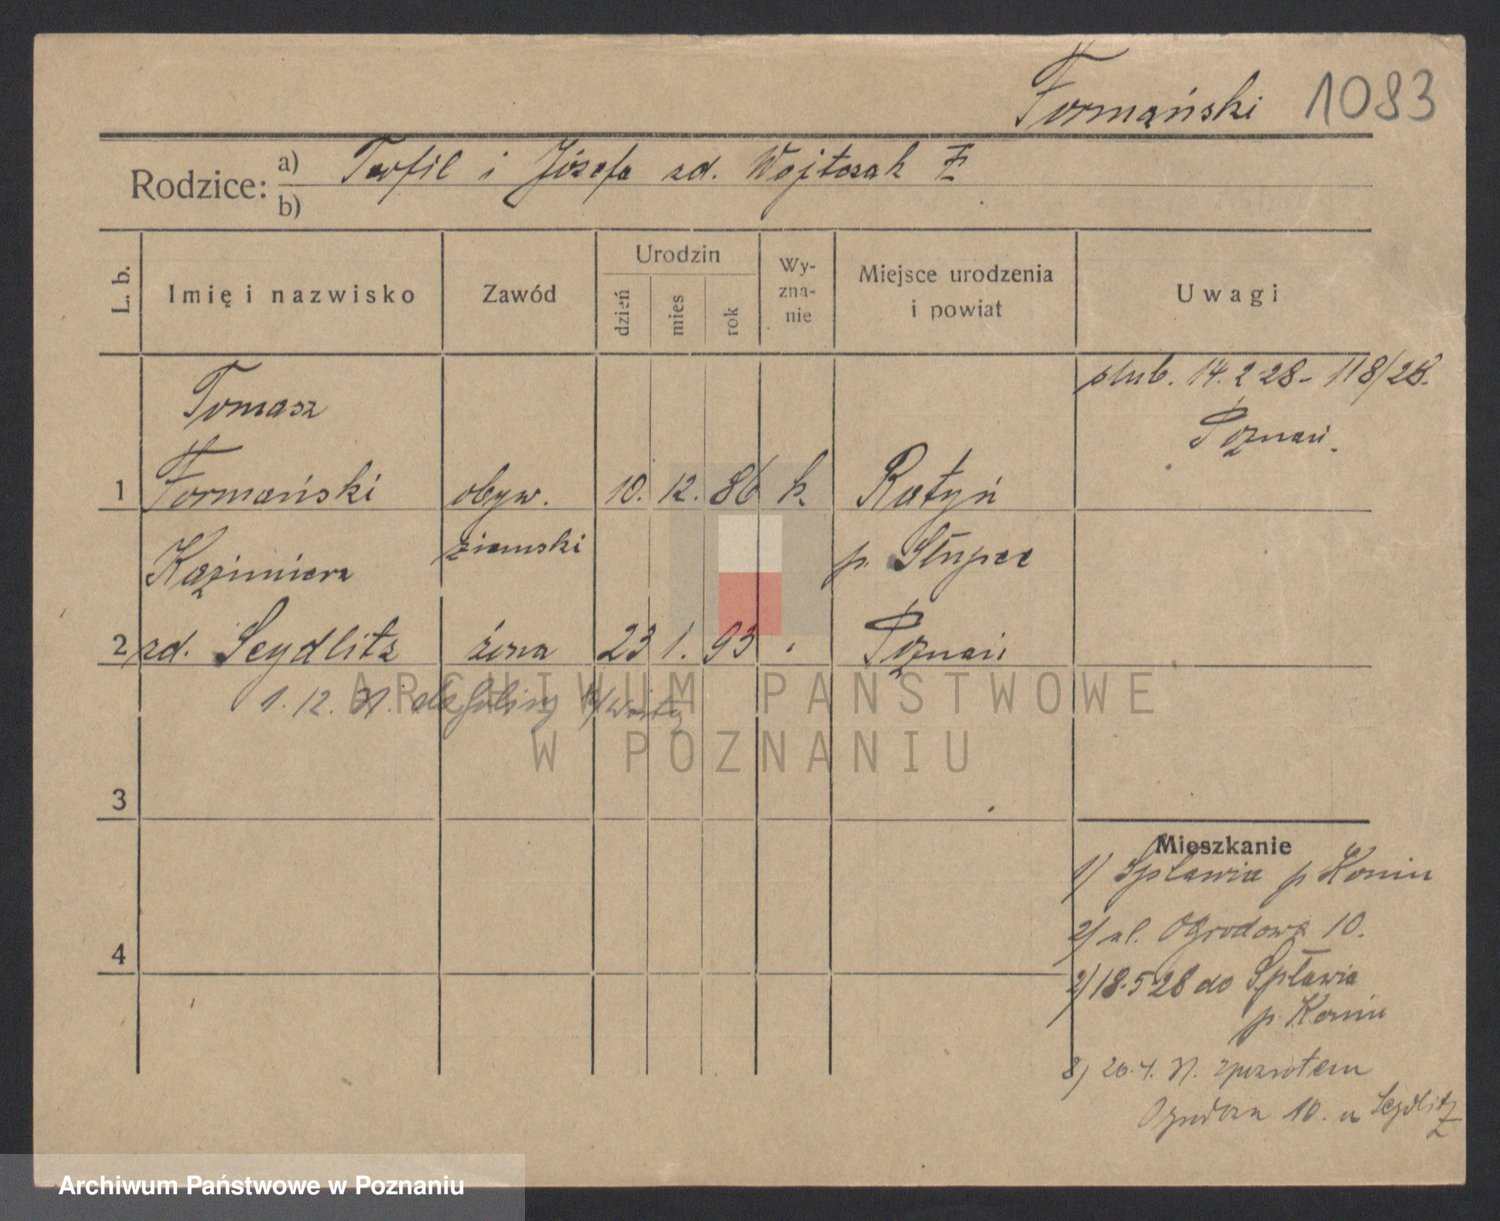 Formański 1083
Rodzice: a) Teofil i Józefa zd. Wojtczak
b)
L. b. Imię i nazwisko Zawód Urodzin dzień mies rok Wy-zna-nie Miejsce urodzenia i powiat Uwagi
ślub. 14. 2 28 - 118/28.
Poznań.
Tomasz
1 Formański obyw. 10. 12. 86 k Ratyń
ziemski p. Słupca
Kazimiera
2 zd. Seydlitz żona 23 1. 93 Poznań
1. 12. 31. do Goliny
3
4
Mieszkanie
1) Spławia p Konin
2) ul. Ogrodowa 10.
2) 18.5 28 do Spławia
p. Konin
3) 20. 4. 31. zpowrotem
Ogrodowa 10. u Seydlitz
ARCHIWUM PAŃSTWOWE
W POZNANIU
Archiwum Państwowe w Poznaniu